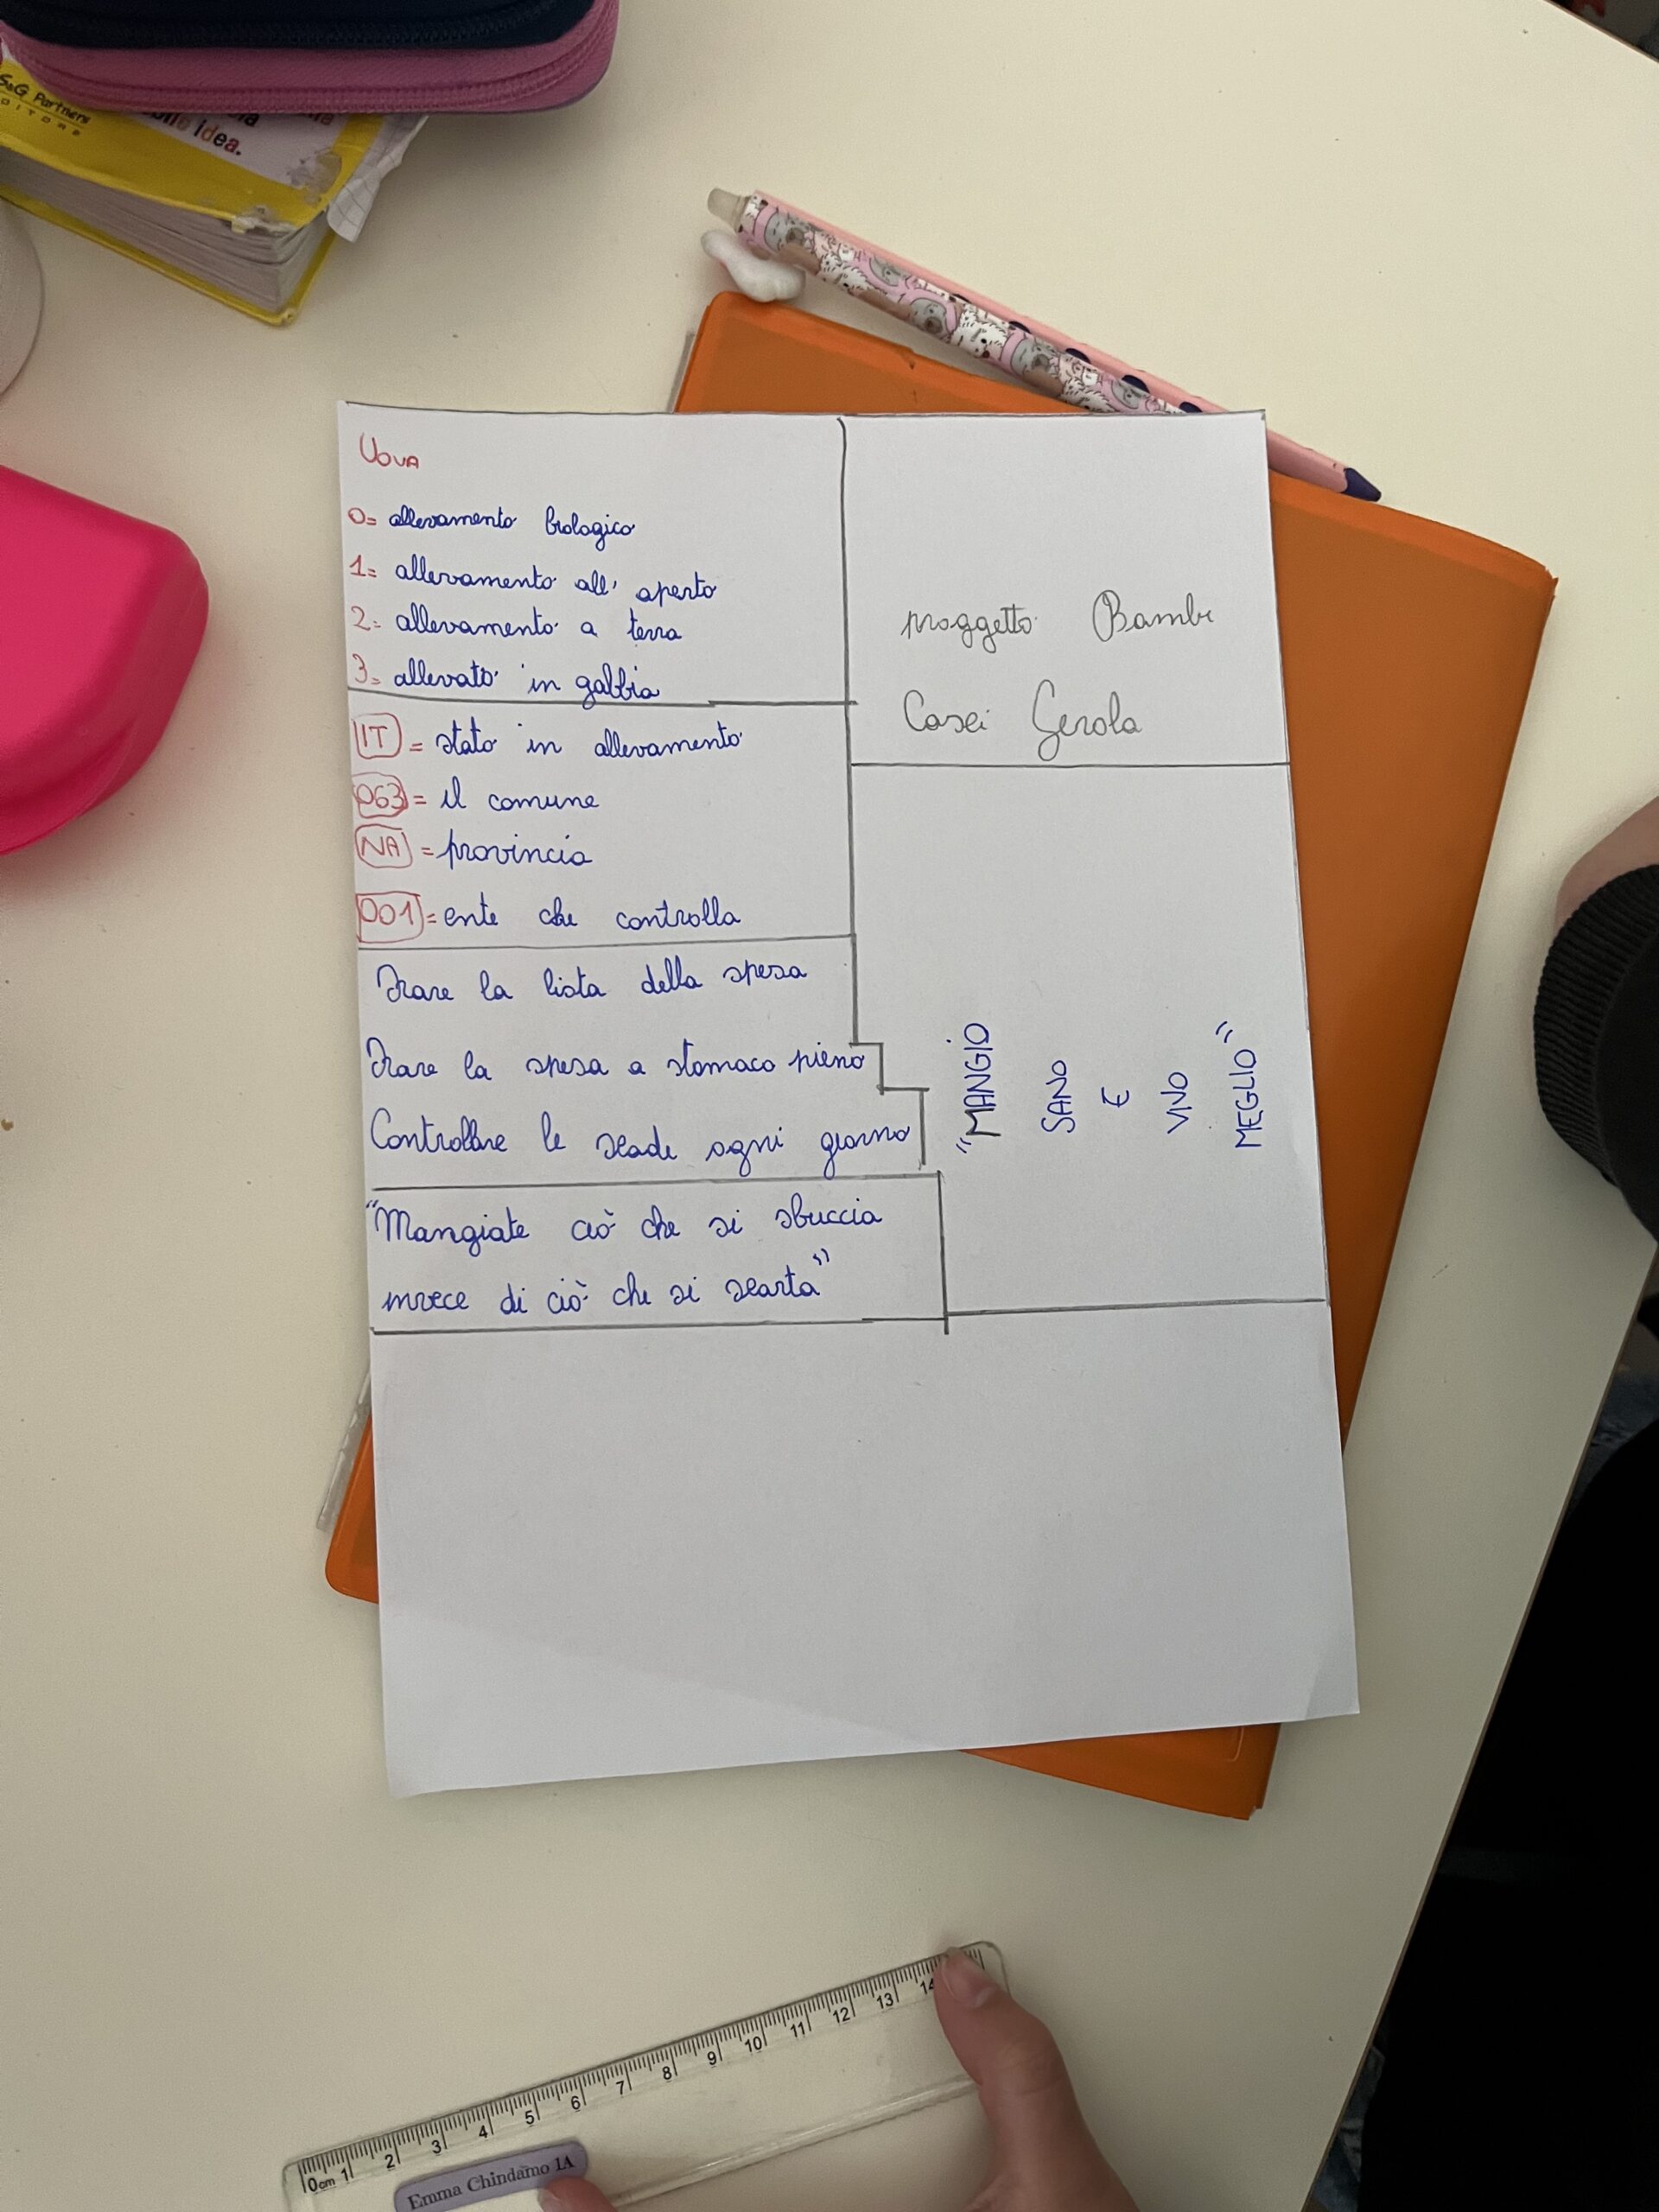 S&G Partners
EDITORE
idea.
UOVA
0= allevamento biologico
1= allevamento all' aperto
2= allevamento a terra
3= allevato in gabbia
IT = stato in allevamento
063 = il comune
NA = provincia
001 = ente che controlla
Fare la lista della spesa
Fare la spesa a stomaco pieno
Controllare le scade ogni giorno
"Mangiate ciò che si sbuccia
invece di ciò che si scarta"
proggetto Bambi
Casei Gerola
"MANGIO
SANO
E
VIVO
MEGLIO"
0cm 1 2 3 4 5 6 7 8 9 10 11 12 13 14
Emma Chindamo 1A